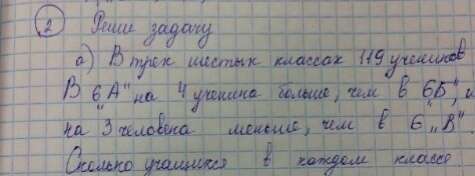 2 Реши задачу
а) В трех шестых классах 119 учеников
В 6 "А" на 4 ученика больше, чем в 6 "Б", и
на 3 человека меньше, чем в 6 "В"
Сколько учащихся в каждом классе